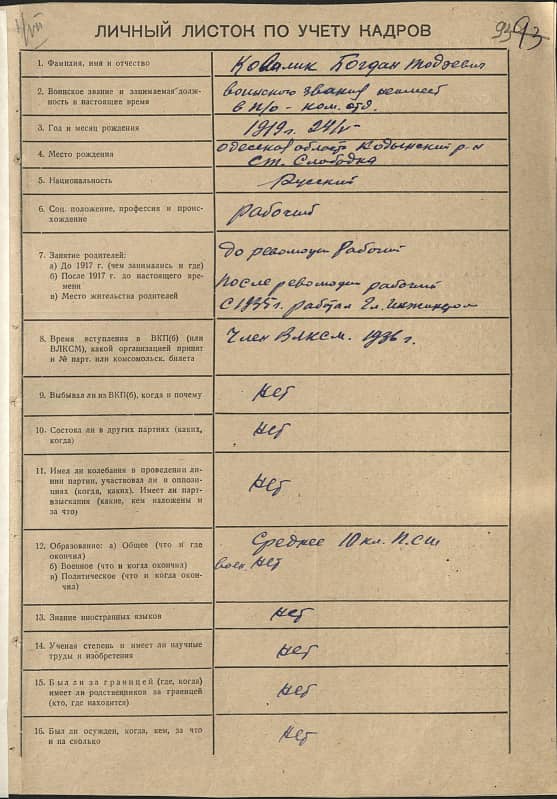 93
ЛИЧНЫЙ ЛИСТОК ПО УЧЕТУ КАДРОВ
1. Фамилия, имя и отчество
Ковалик Богдан
2. Воинское звание и занимаемая долж-
ность в настоящее время
воинского звания неимеет
в п/о – ком. отд.
3. Год и месяц рождения
1919 г. 24/V
4. Место рождения
Одесская область Кодымский р-н
ст. Слободка
5. Национальность
Русский
6. Соц. положение, профессия и проис-
хождение
Рабочий
7. Занятие родителей:
а) До 1917 г. (чем занимались и где)
б) После 1917 г. до настоящего вре-
мени
в) Место жительства родителей
До революции Рабочий
После революции рабочий
С 1935 г. работал Гл. инженером
8. Время вступления в ВКП(б) (или
ВЛКСМ), какой организацией принят
и № парт. или комсомольск. билета
Член ВЛКСМ. 1936 г.
9. Выбывал ли из ВКП(б), когда и почему
Нет
10. Состоял ли в других партиях (каких,
когда)
Нет
11. Имел ли колебания в проведении ли-
нии партии, участвовал ли в оппози-
циях (когда, каких). Имеет ли парт-
взыскания (какие, кем наложены и
за что)
Нет
12. Образование: а) Общее (что и где
окончил)
б) Военное (что и когда окончил)
в) Политическое (что и когда окон-
чил)
Среднее 10 кл. П. СШ
воен. нет
13. Знание иностранных языков
Нет
14. Ученая степень и имеет ли научные
труды и изобретения
Нет
15. Был ли за границей (где, когда)
имеет ли родственников за границей
(кто, где находится)
Нет
16. Был ли осужден, когда, кем, за что
и на сколько
Нет